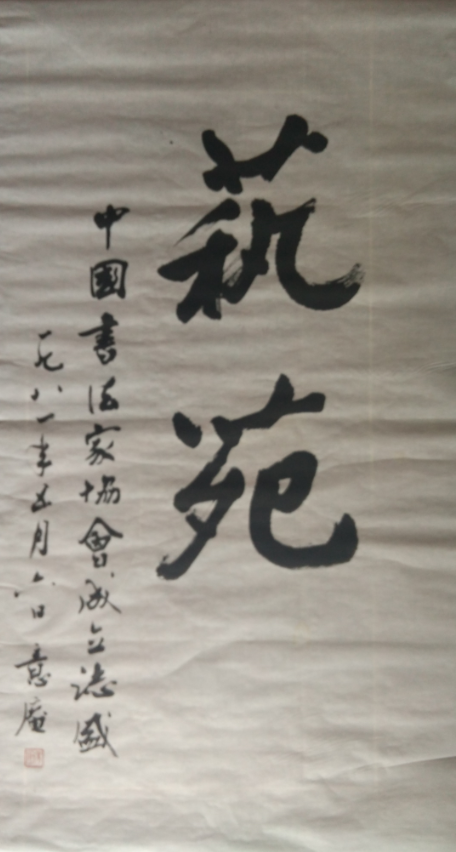 藝苑
中國書法家協會成立誌盛
一九八一年五月六日 意庵